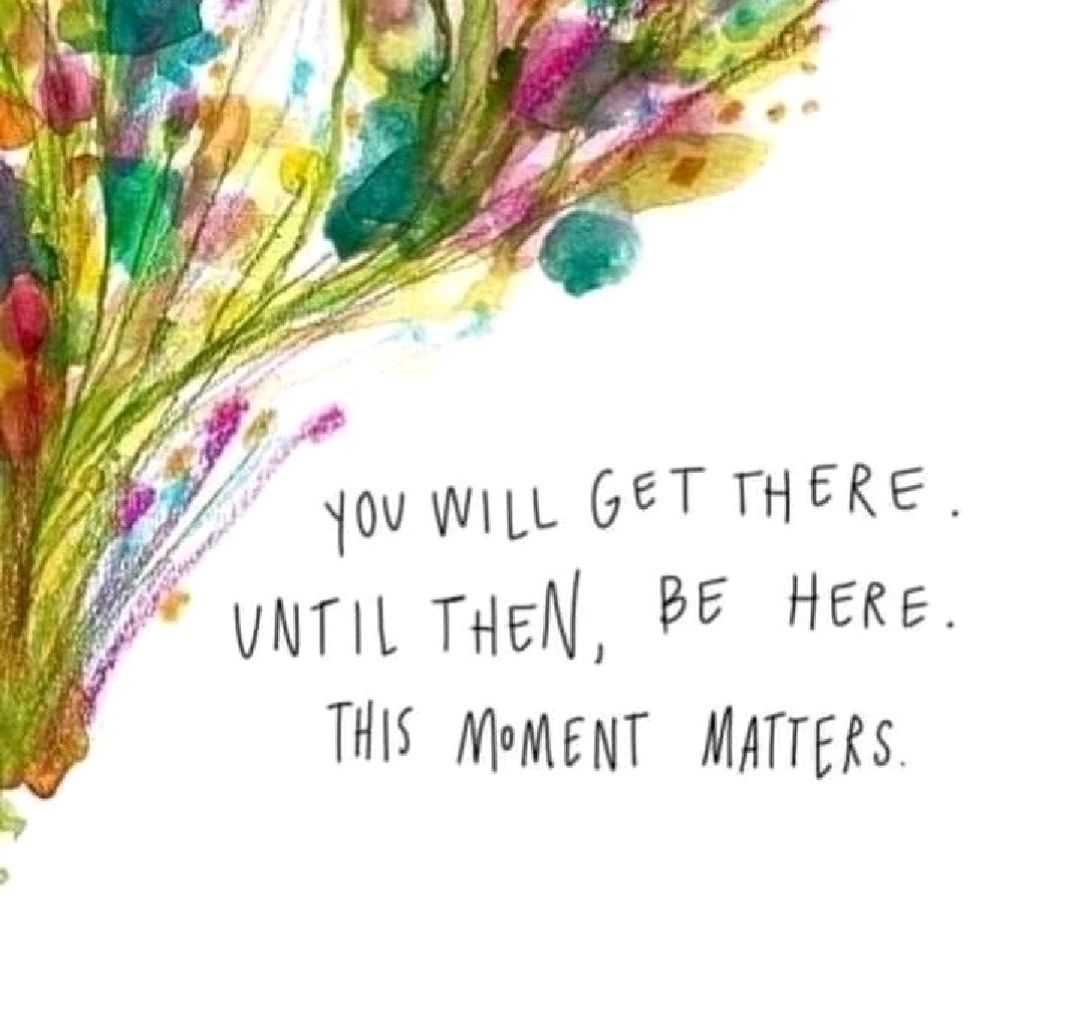 YOU WILL GET THERE.
UNTIL THEN, BE HERE.
THIS MOMENT MATTERS.